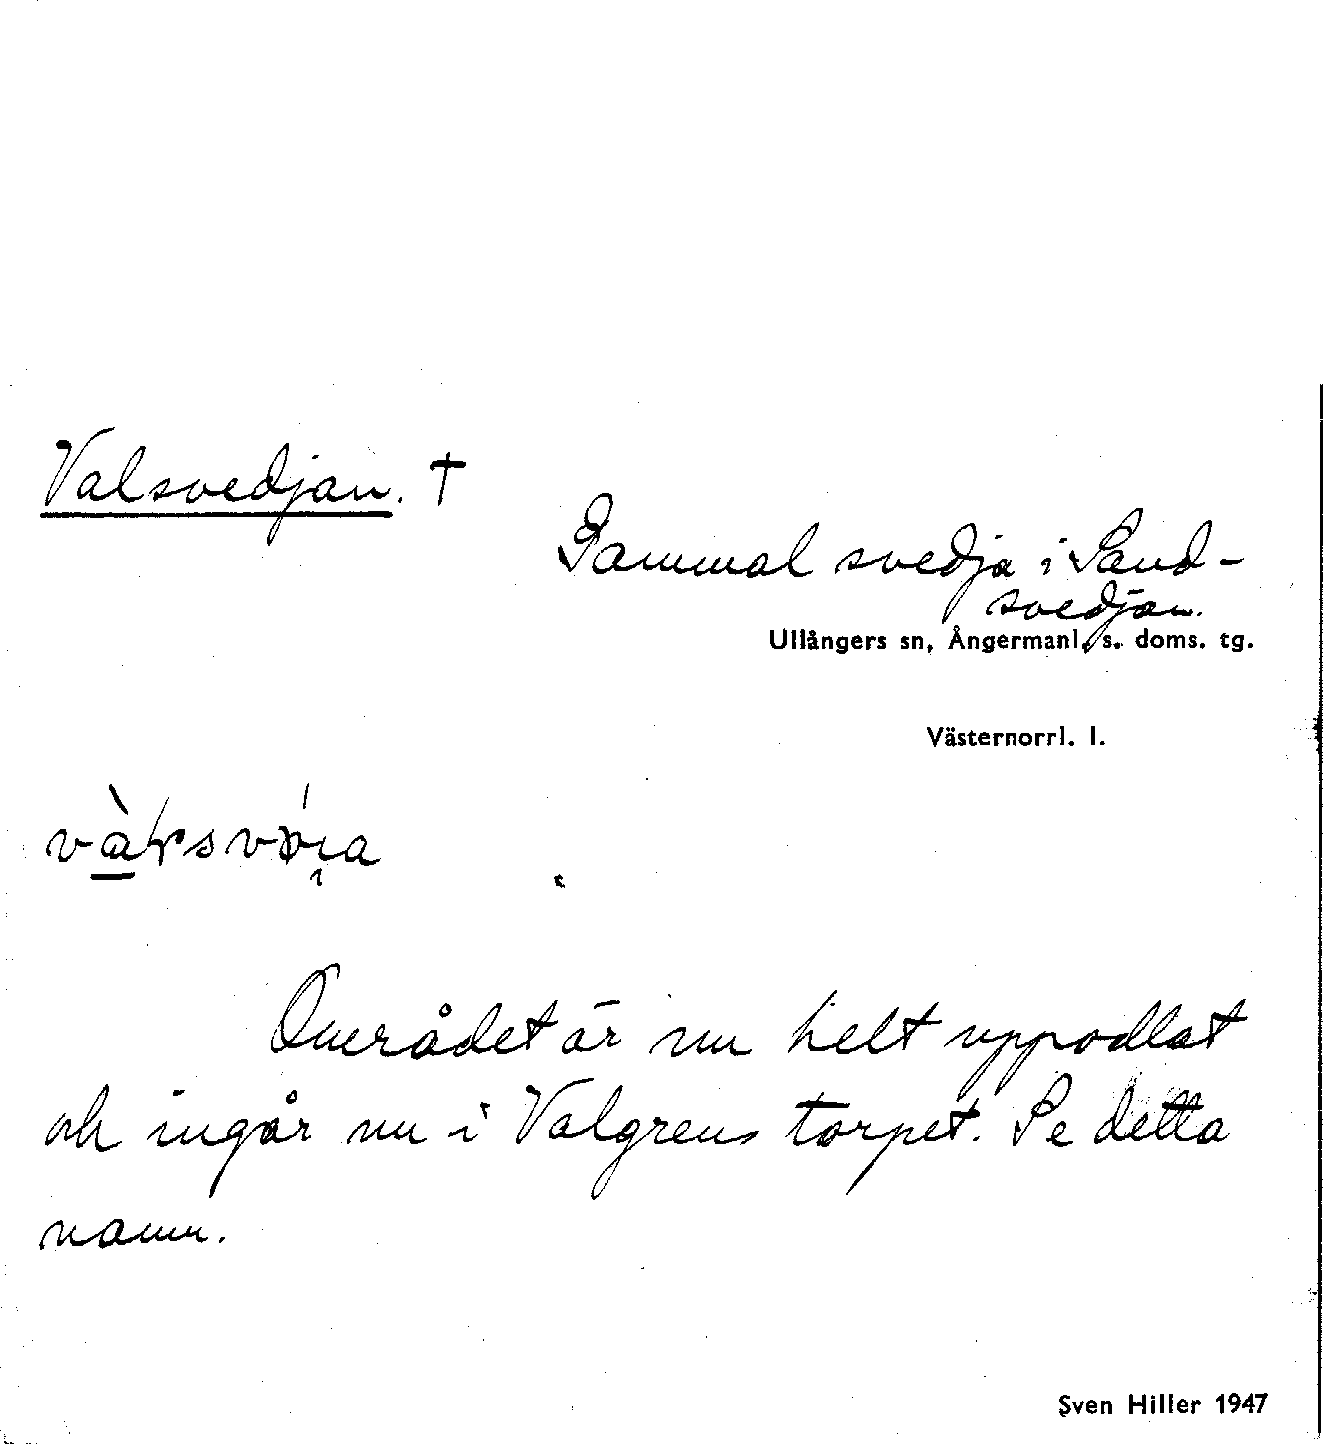 Valsvedjan. †
Gammal svedja i Sand-
svedjan.
Ullångers sn, Ångermanl. s. doms. tg.
Västernorrl. l.
Området är nu helt uppodlat
och ingår nu i Valgrens torpet. Se detta
namn.
Sven Hiller 1947